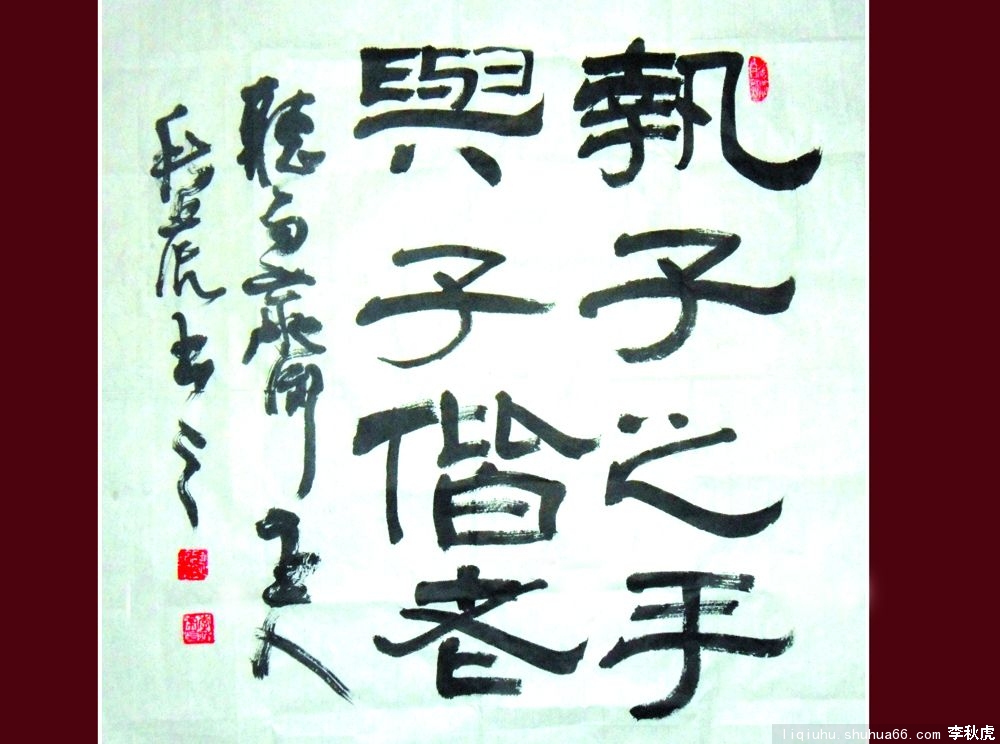 執子之手
與子偕老
聽雨齋主人
秋虎書之
liqiuhu.shuhua66.com 李秋虎